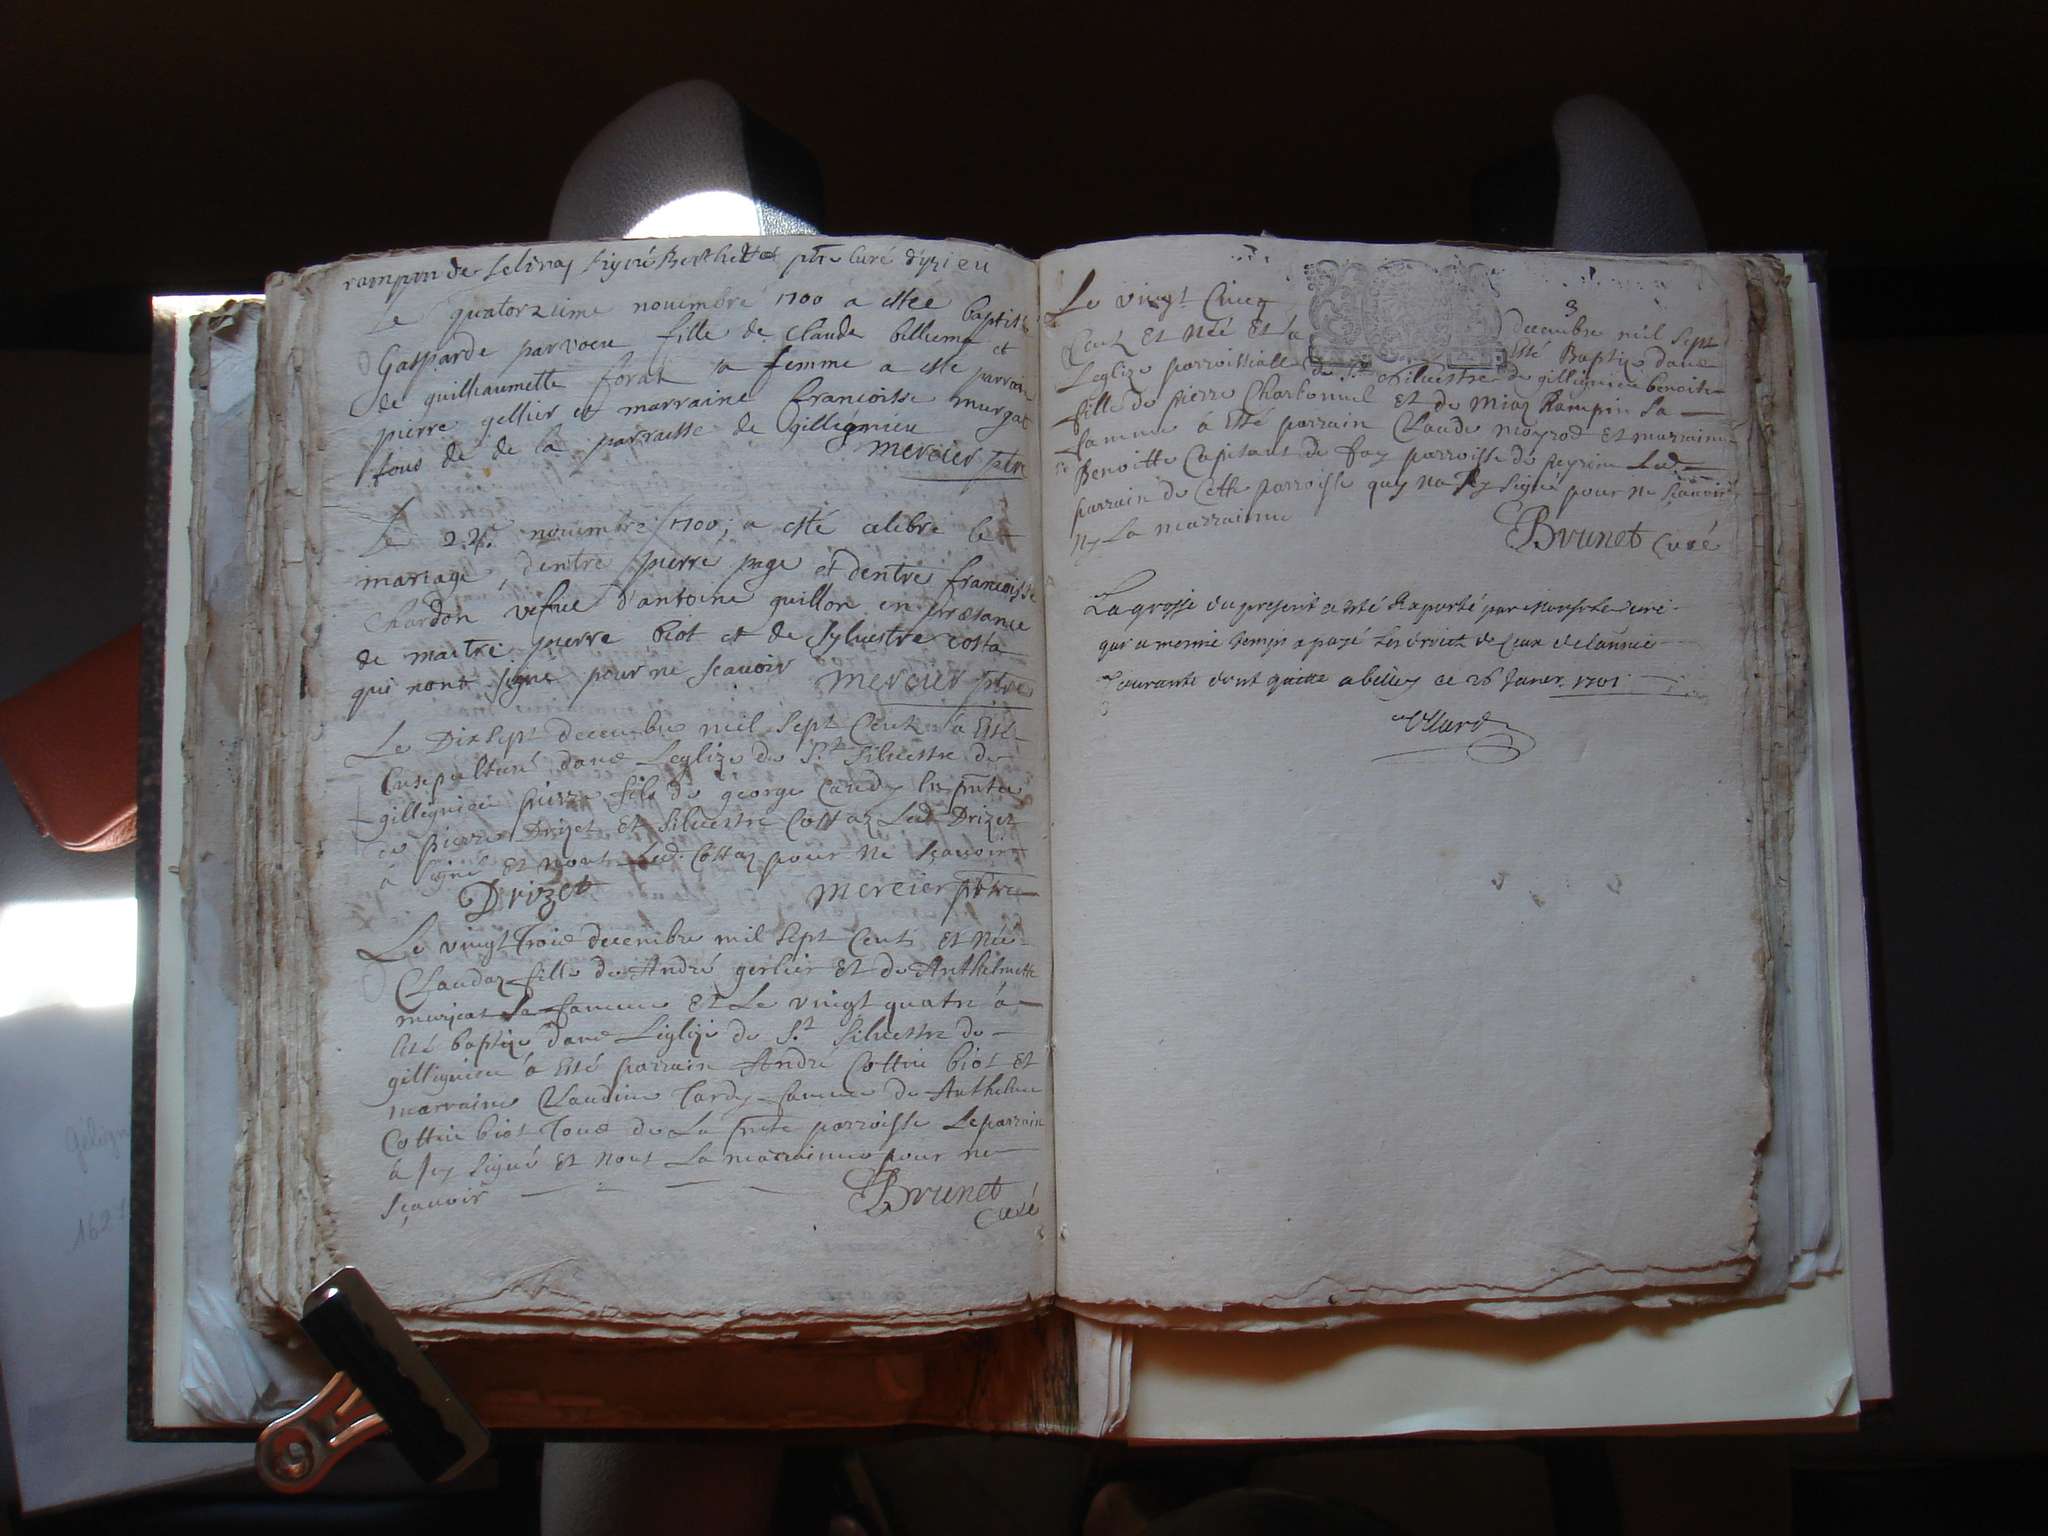 rampon de Selinaz signé Berthet ptre curé d'yzieu
Le quatorzieme nouembre 1700 a estee baptisé
Gasparde parvoeu fille de Claude billiema et
de guilheaumette forat sa femme a este parrain
pierre gellier et marraine francoisse murgat
tous de de la parraisse de gillégnieu
mercier ptre
Le 22e nouembre 1700, a esté celebre le
mariage, dentre pierre page et dentre francoisse
Chardon vefue d'antoine guillon en præsance
de maitre pierre biot et de Sylvestre costa
qui nont signe pour ne scauoir mercier ptre
Le Dix sept decembre mil sept Cent à Esté
Ensepulturé dans Leglize de St Siluestre de
gillégnieu pierre fils de george Cardy En prnte
de Pierre Drizet Et Siluestre Cottaz Led. Drizet
à signé Et nont Led. Cottaz pour Ne Sçauoir
Drizet mercier pbtre
Le vingt Trois decembre mil sept Cent Et Née
Claudaz fille de André gerlier Et de Anthelmette
murjcat Sa famme Et Le vingt quatre à
Esté baptize dans Leglize de St Siluestre de
gillignieu à Esté parrain André Cottin biot Et
marraine Claudine Tardy famme de Anthelme
Cottin biot Tous de La prnte parroisse Le parrain
à Icy Signé Et nont La marrainne pour ne
sçauoir Brunet
Curé
3
Le vingt Cinq decembre mil Sept
Cent Et Née Et à Esté Baptize dans
Leglize parroissialle de St Siluestre de gillignieu benoite
fille de pierre Charbonnel Et de Miaz Rampin Sa
famme à Esté parrain Claude moyrod Et marrainne
Benoitte Capitant de fay parroisse de peyrieu Led.
parrain de Cette parroisse quy na Icy signé pour Ne sçauoir
Ny La marrainne
Brunet Curé
La grosse du present a esté Raporté par Monsr le Curé
qui a mesme temps a payé les droict de Ceux de lannée
Courante dont quitte a belley ce 26 Janer. 1701